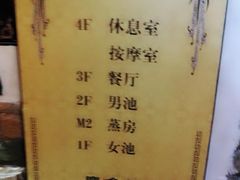 4F 休息室
按摩室
3F 餐厅
2F 男池
M2 蒸房
1F 女池